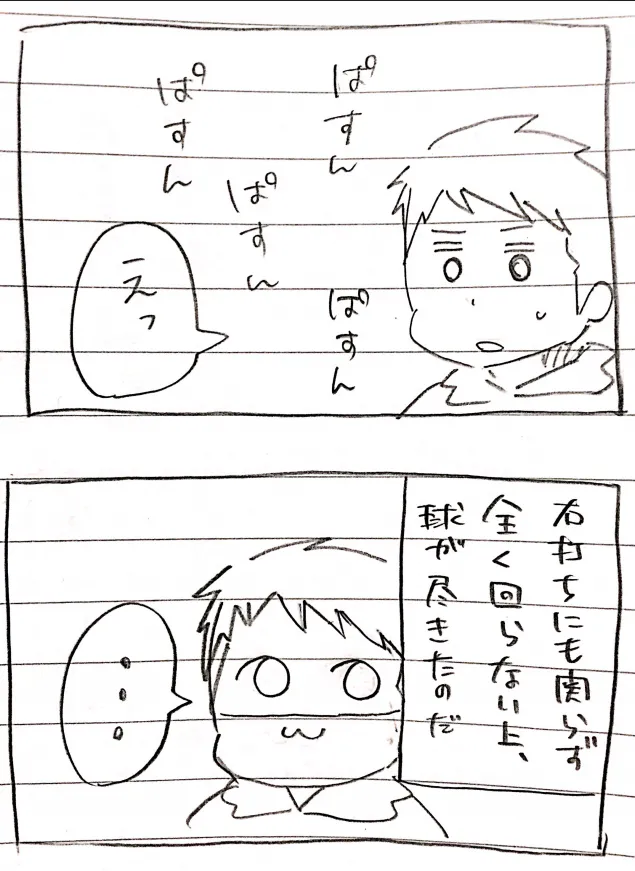 ぱすん
ぱすん
ぱすん
ぱすん
えっ
右打ちにも関らず
全く回らない上、
球が尽きたのだ
・・・